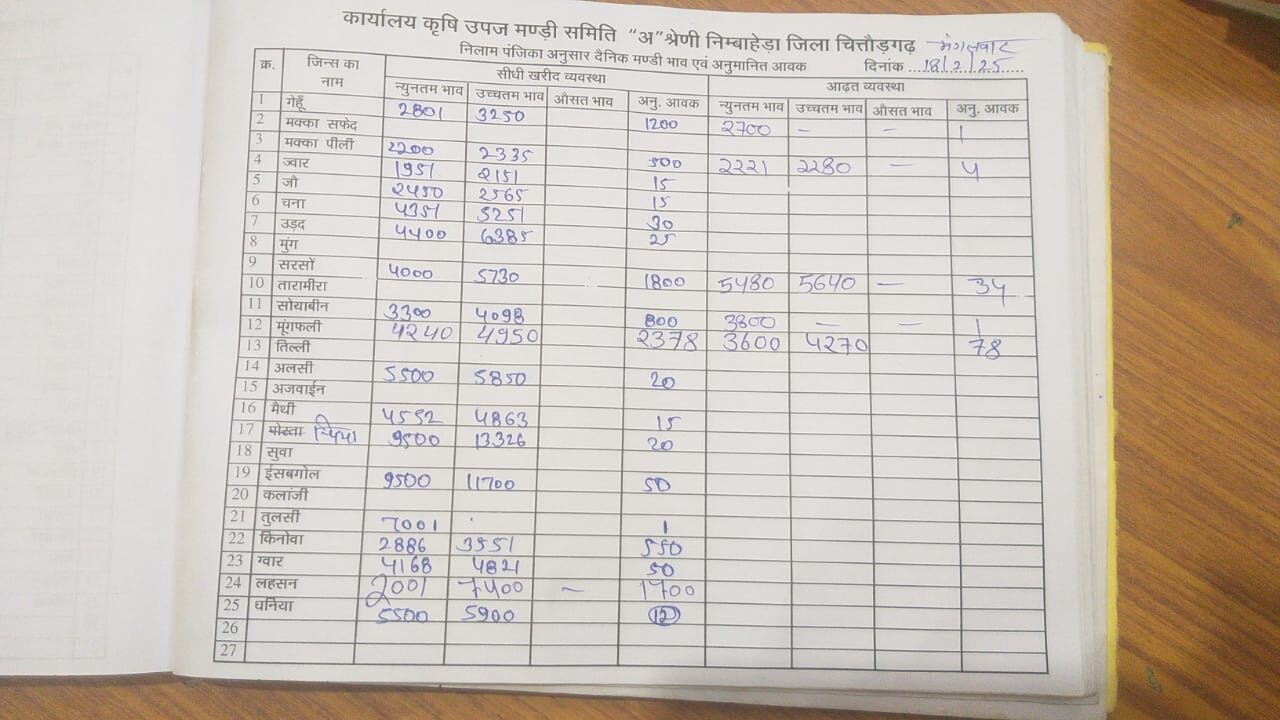 कार्यालय कृषि उपज मण्डी समिति "अ"श्रेणी निम्बाहेड़ा जिला चित्तौड़गढ़ मंगलवार
निलाम पंजिका अनुसार दैनिक मण्डी भाव एवं अनुमानित आवक दिनांक 18/2/25
क्र. जिन्स का नाम सीधी खरीद व्यवस्था आढ़त व्यवस्था
न्युनतम भाव उच्चतम भाव औसत भाव अनु. आवक न्युनतम भाव उच्चतम भाव औसत भाव अनु. आवक
1 गेहूँ 2801 3250 1200 2700 — — 1
2 मक्का सफेद
3 मक्का पीली 2200 2335 500 2221 2280 — 4
4 ज्वार 1951 2151 15
5 जौ 2450 2565 15
6 चना 4351 5251 30
7 उड़द 4400 6385 25
8 मुंग
9 सरसों 4000 5730 1800 5480 5640 — 34
10 तारामीरा
11 सोयाबीन 3300 4098 800 3800 — — 1
12 मूंगफली 4240 4950 2378 3600 4270 78
13 तिल्ली
14 अलसी 5500 5850 20
15 अजवाईन
16 मैथी 4552 4863 15
17 पोस्ता 9500 13326 20
18 सुवा
19 ईसबगोल 9500 11700 50
20 कलांजी
21 तुलसी 7001 1
22 किनोवा 2886 3551 550
23 ग्वार 4168 4821 50
24 लहसन 2001 7400 — 1700
25 धनिया 5500 5900 12
26
27